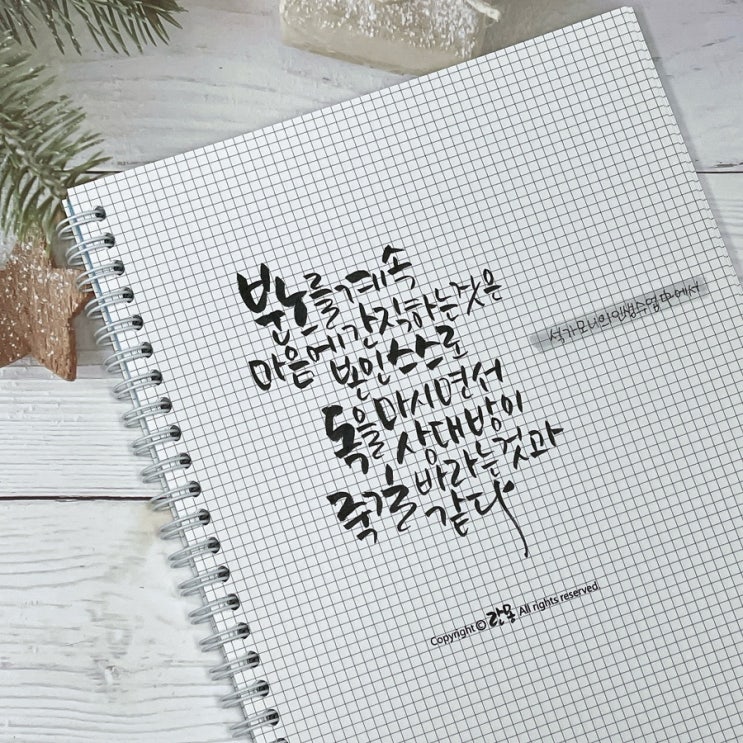 분노를 계속
마음에 간직하는것은
본인 스스로
독을 마시면서
상대방이
죽길 바라는것과
같다
석가모니의 인생수업 中에서
Copyright © 란몽 All rights reserved.